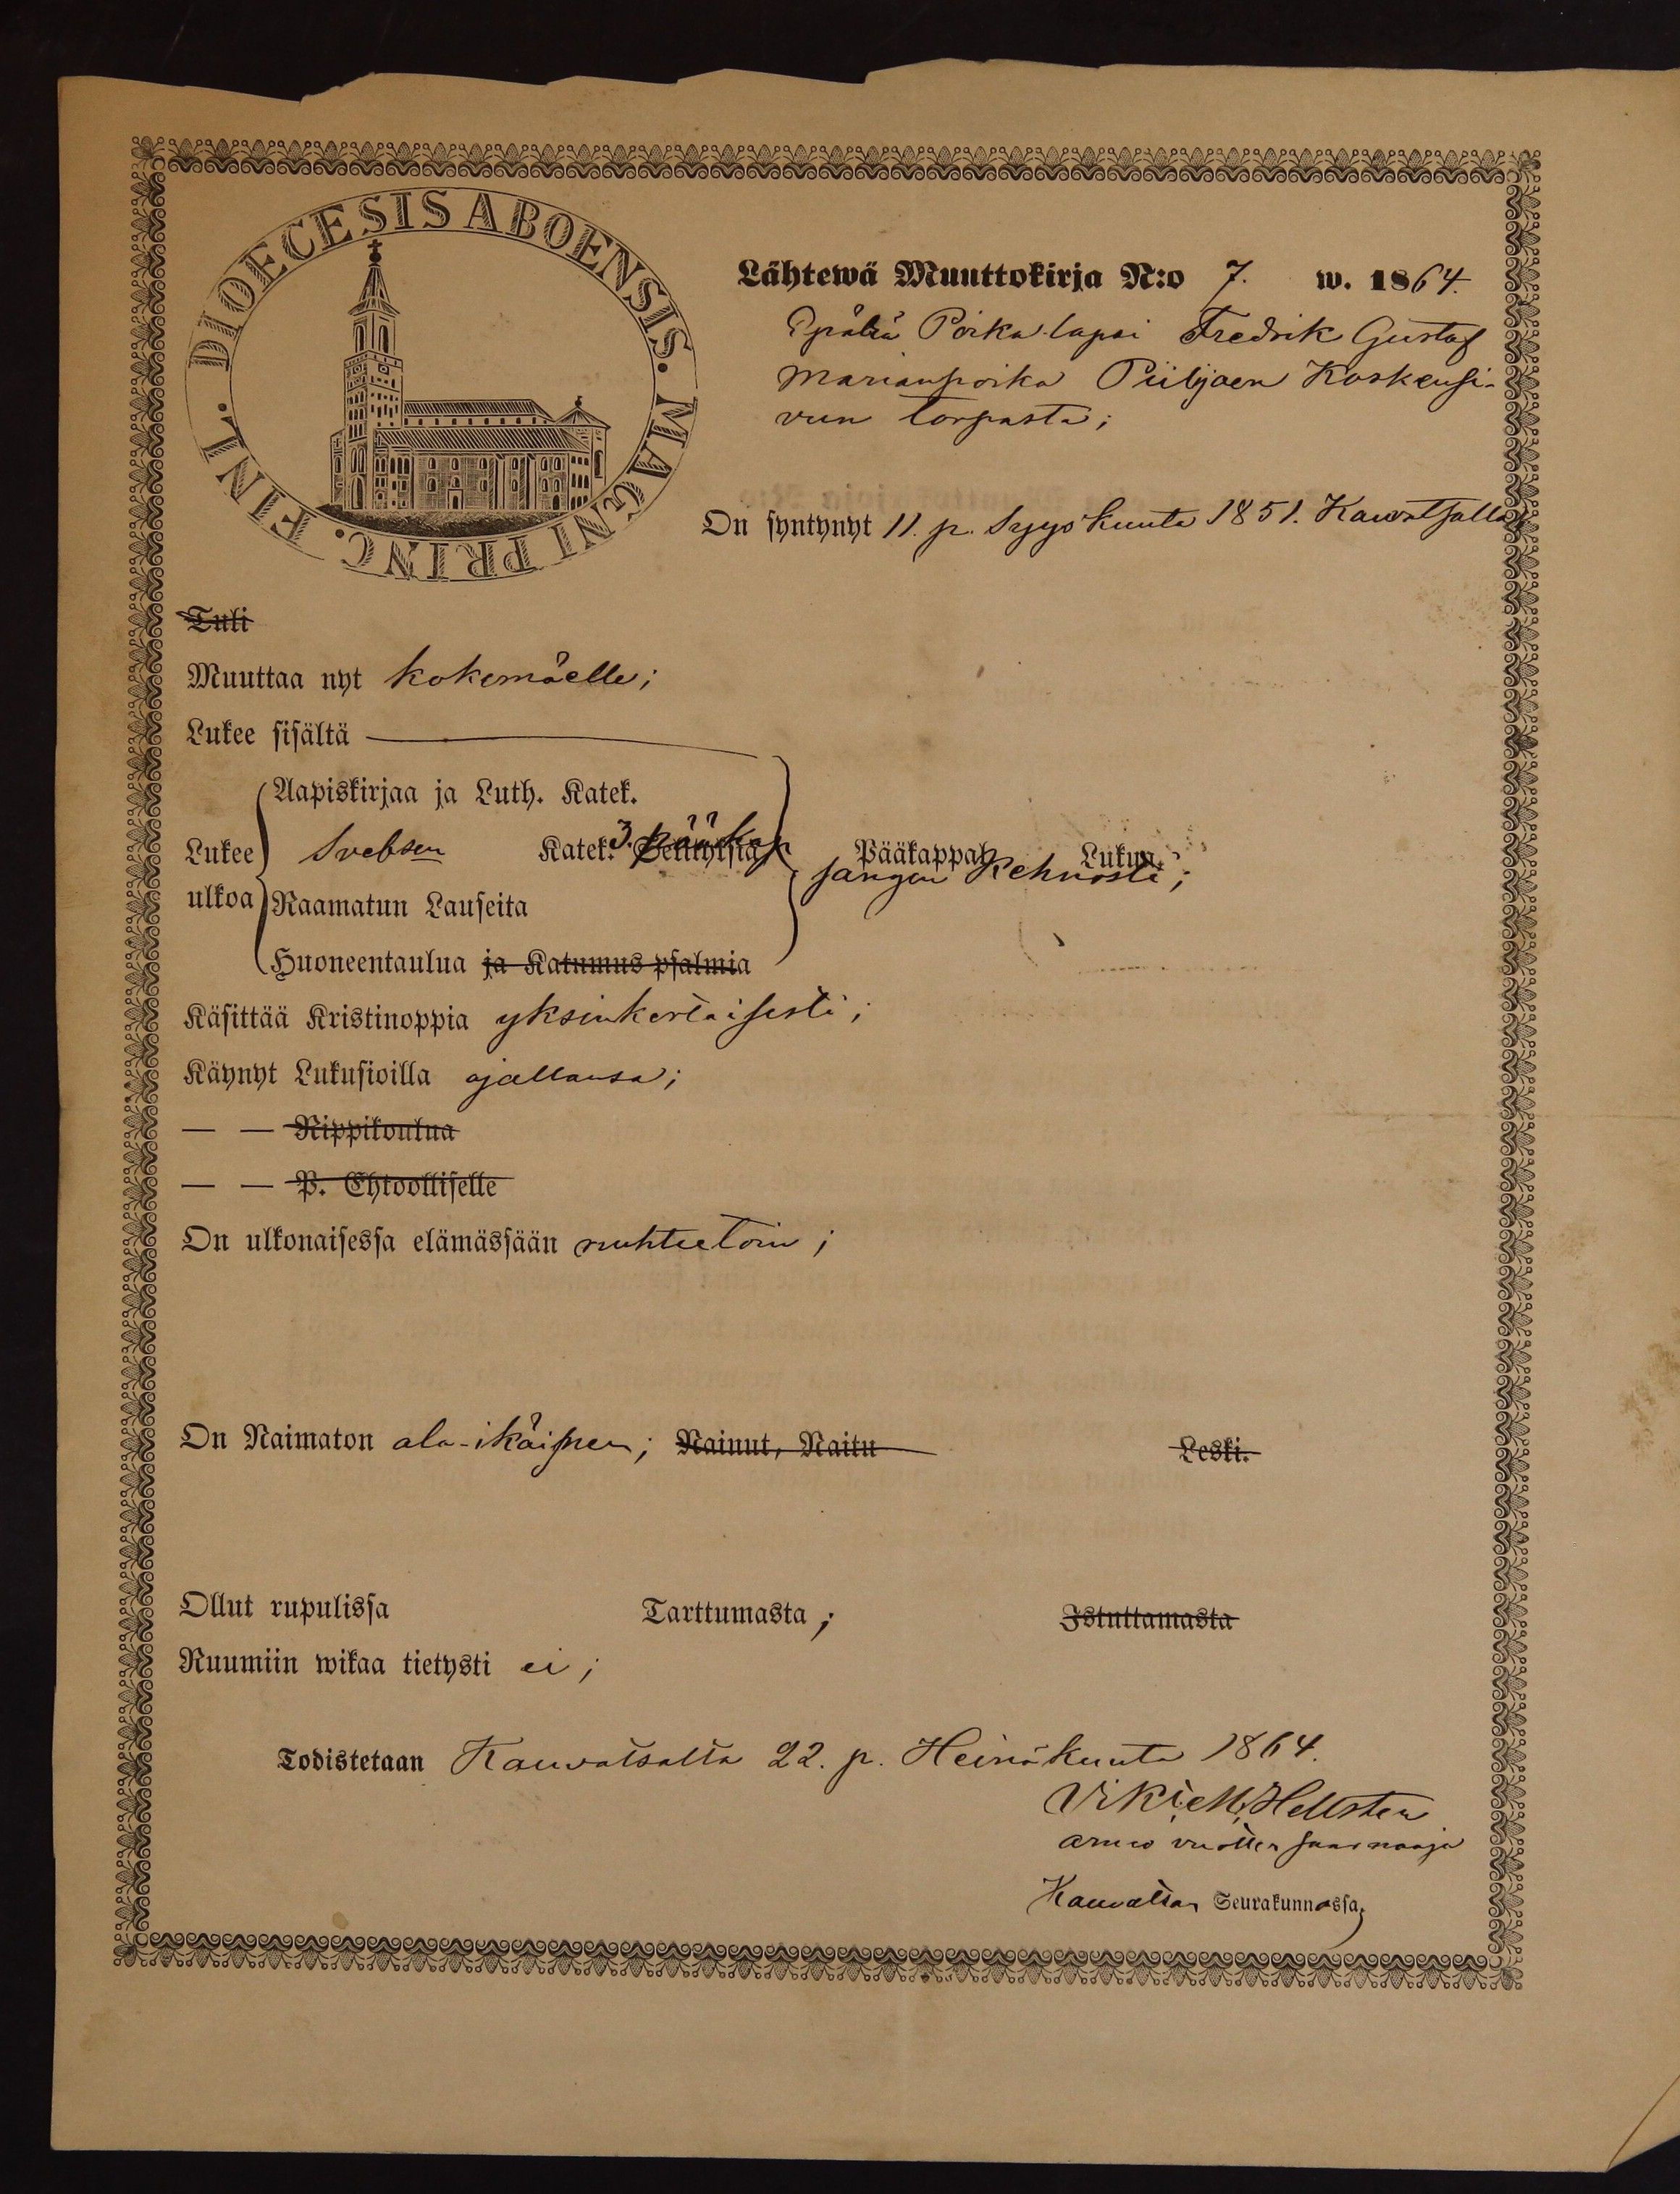 DIOECESIS ABOENSIS. MAGNI PRINC. FINL.
Lähtewä Muuttokirja N:o 7. w. 1864.
Epäträ Poika lapsi Fredrik Gustaf
Marianpoika Piiljaen Koskensi-
vun torpasta;
On syntynyt 11. p. Syys kuuta 1851. Kawatsalla
Tuli
Muuttaa nyt Kokemäelle;
Lukee sisältä
Aapiskirjaa ja Luth. Katek.
Lukee Svebsen Katek. 3. pääkap Pääkappal Lukua.
sangen Kehnosti;
ulkoa Raamatun Lauseita
Huoneentaulua ja Katumus psalmia
Käsittää Kristinoppia yksinkertaisesti;
Käynyt Lukusioilla ajallansa;
— — Rippikoulua
— — P. Ehtoolliselle
On ulkonaisessa elämässään nuhteetoin;
On Naimaton ala-ikäinen; Nainut, Naitu Leski.
Ollut rupulissa Tarttumasta; Istuttamasta
Ruumiin wikaa tietysti ei;
Todistetaan Kauvatsalta 22. p. Heinäkuuta 1864.
Hellsten
armo vuoden saarnaaja
Kauvatsan Seurakunnassa,